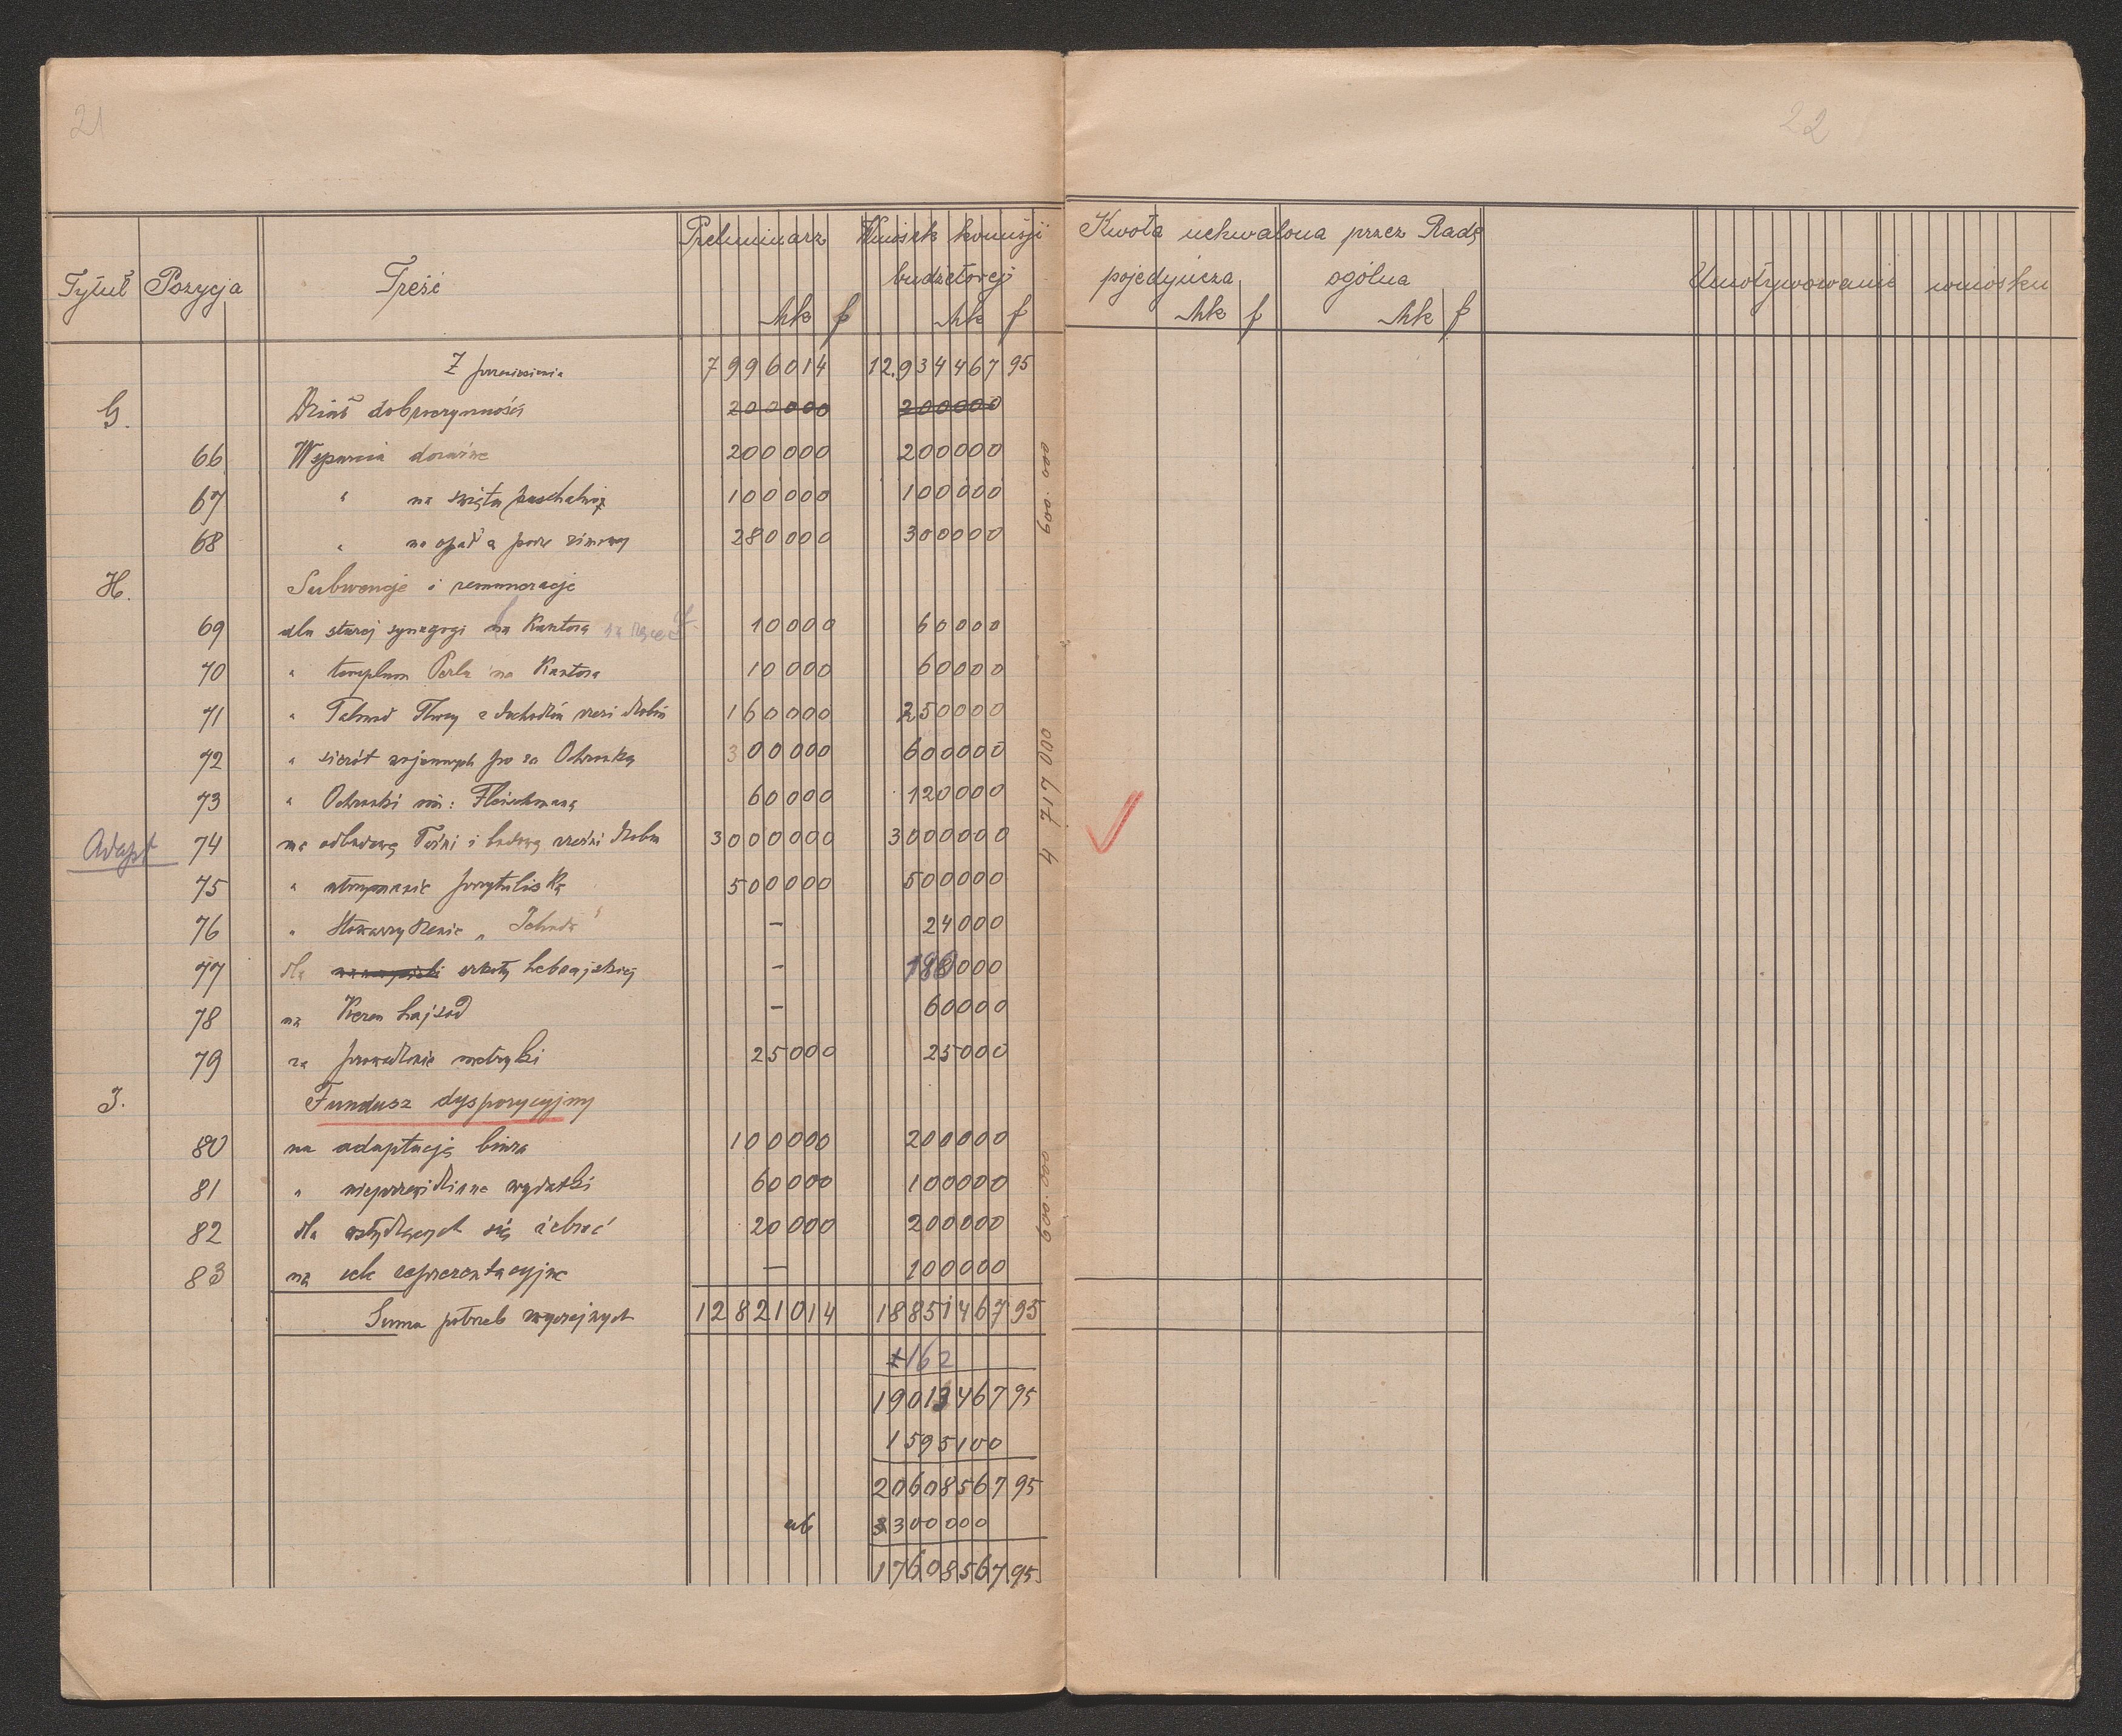 21
22
Tytuł Pozycja Treść Preliminarz Mk f Wniosek komisji budżetowej Mk f
Kwota uchwalona przez Radę
pojedyńcza Mk f ogólna Mk f
Umotywowanie wniosku
Z przeniesienia 7996014 12.934467 95
G. Dział dobroczynności 200000 200000
66 Wsparcia doraźne 200000 200000
67 " na święta paschalne 100000 100000
68 " na opał a porę zimową 280000 300000
600.000
H. Subwencje i remuneracje
69 dla starej synagogi na Kantora 10000 60000
70 " templum Perla na Kantora 10000 60000
71 " Talmud Thory z dochodów rzezi drobiu 160000 250000
72 " sierót wojennych po za Ochronką 300000 600000
73 " Ochronki im: Fleischmana 60000 120000
4 717 000
Adapt 74 na odbudowę Łaźni i budowę rzeźni drobiu 3000000 3000000
75 " utrzymanie przytuliska 500000 500000
76 " Stowarzyszenie „Jehuda" — 24000
77 dla szkoły hebrajskiej — 180000
78 na Keren hajsod — 60000
79 za prowadzenie metryki 25000 25000
I. Fundusz dyspozycyjny
80 na adaptację biura 100000 200000
81 " nieprzewidziane wydatki 60000 100000
82 dla wstydzących się żebrać 20000 200000
83 na cele reprezentacyjne — 100000
600.000
Suma potrzeb zwyczajnych 12821014 18851467 95
+162
19013467 95
1595100
20608567 95
ab 3300000
17608567 95